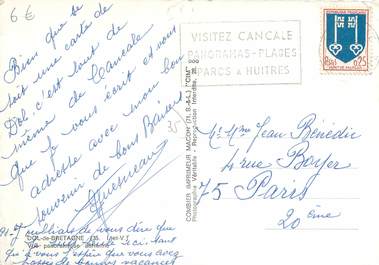 6€
VISITEZ CANCALE
PANORAMAS-PLAGES
PARCS A HUITRES
REPUBLIQUE FRANCAISE
0,25
Bien que ce
soit une carte de
Dol, c'est tout de
même de Cancale
que je vous écrit et vous
adresse avec mon bon
souvenir de bons Baisers
35
COMBIER IMPRIMEUR MACON (71, S.-&-L.) "CIM"
Photographie Véritable - Reproduction Interdite
Mr Mme Jean Bénédic
4 rue Boyer
75 Paris
20ème
DOL-de-BRETAGNE (35, I.-et-V.)
Vue panoramique aérienne
de vous dire que
ici. tant
qu'à vous j'espère que vous avez
passés de bonnes vacances